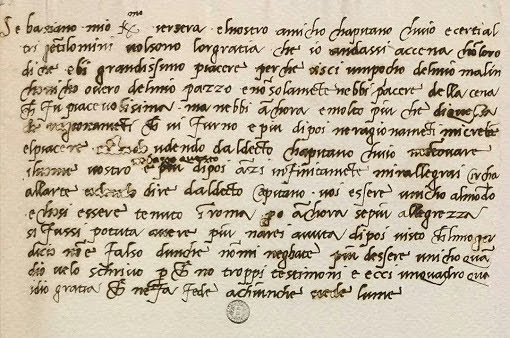 Sebastiano mio k(arissi)mo iersera el nostro amicho chapitano Chuio e certi al
tri gentilomini volsono lor gratia che io andassi a ccena cho loro
di che ebi grandissimo piacere perche usci umpocho del mio malin
chonicho o vero del mio pazzo e no solamete nebbi piacere della cena
che fu piacevolissima ma nebbi anchora e molto piu che di quella
de ragionameti che vi furno e piu dipoi ne ragionameti mi crebe
el piacere udendo dal decto chapitano Chuio mentovare
il nome vostro ne basto questo e piu dipoi anzi infinitamete mi rallegrai circha
allarte udendo dire dal decto Capitano voi essere unicho al modo
e chosi essere tenuto i roma po anchora se piu allegrezza
si fussi potuta avere piu narei avuta dipoi visto chel mio gu
dicio no e falso dunche nommi neghate piu dessere unicho qua
dio velo schrivo p che no troppi testimoni e ecci umquadro qua
idio gratia che ne fa fede a chiunche vede lume